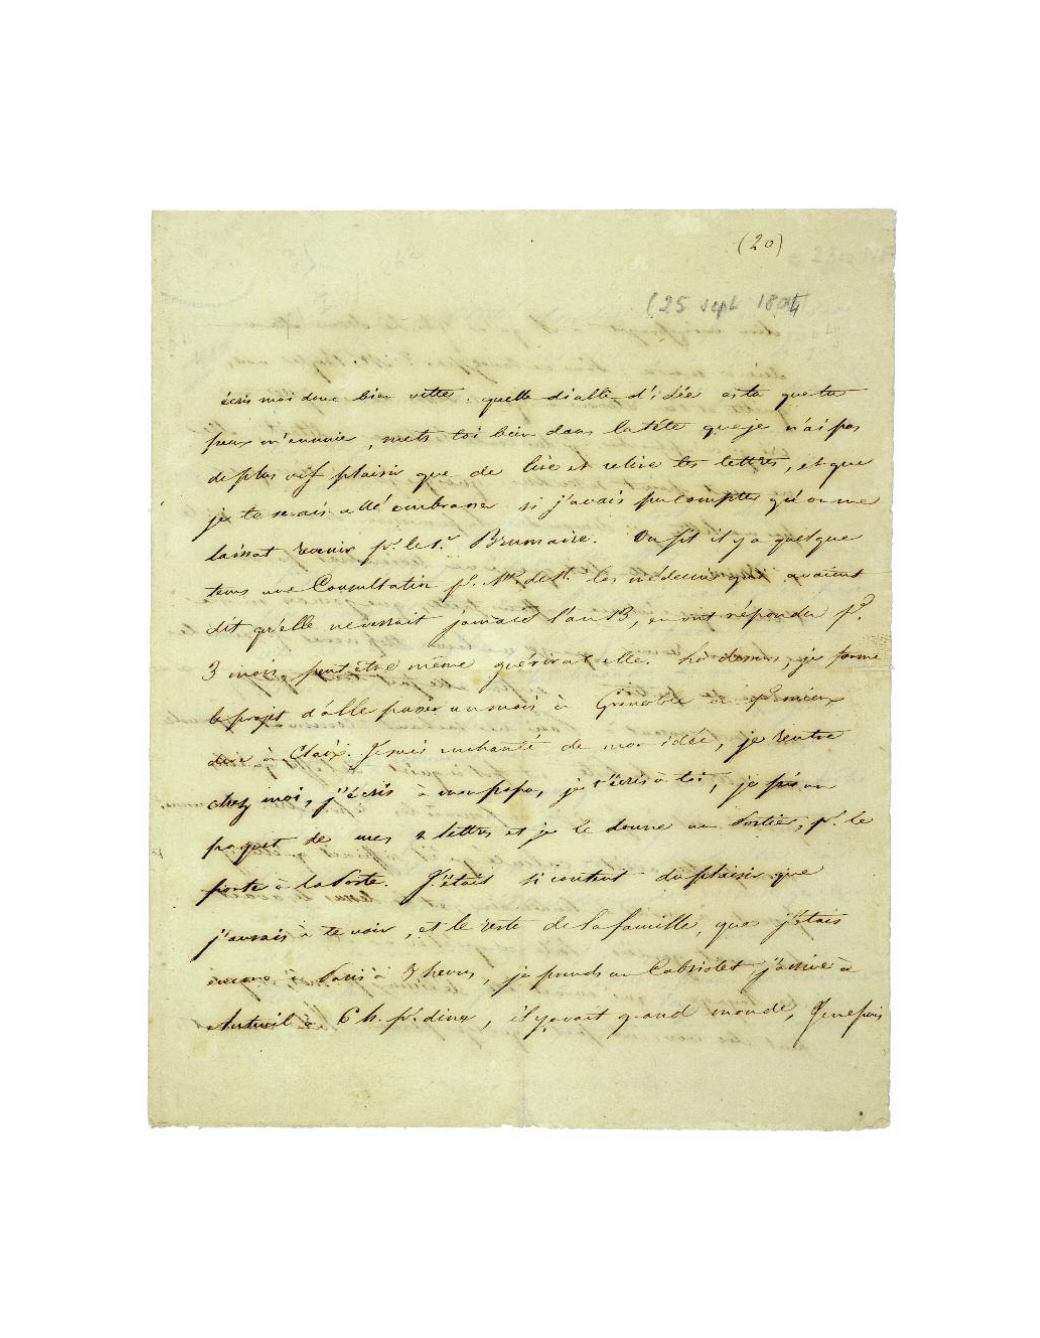 (20)
(25 sept 1804
écris moi donc bien vitte. quelle diable d'idée as tu que tu
peux m'ennuier, mets toi bien dans la tête que je n'ai pas
de plus vif plaisir que de lire et relire tes lettres, et que
je te serais allé embrasser si j'avais pu compter qu'on me
laissat revenir pr. le 1.er Brumaire. On fit il y a quelque
tems une Consultation pr. Me de les médecins qui avaient
dit qu'elle ne verrait jamais l'an 13, en ont répondu pr.
3 mois peut être même guérirat elle. Là dessus, je forme
le projet d'alle passer un mois à Grenoble ou pr mieux
dire à Claix. Je suis enchanté de mon idée, je rentre
chez moi, j'écris à mon papa, je t'écris à toi, je fais un
paquet de mes 2 lettres et je le donne au Portier, pr. le
porte à la Poste. J'étais si content du plaisir que
j'aurais à te voir, et le reste de la famille, que j'étais
à Paris à 5 heures, je prends un Cabriolet, j'arrive à
Auteuil à 6 h. pr. diner, il y avait grand monde, Je ne puis